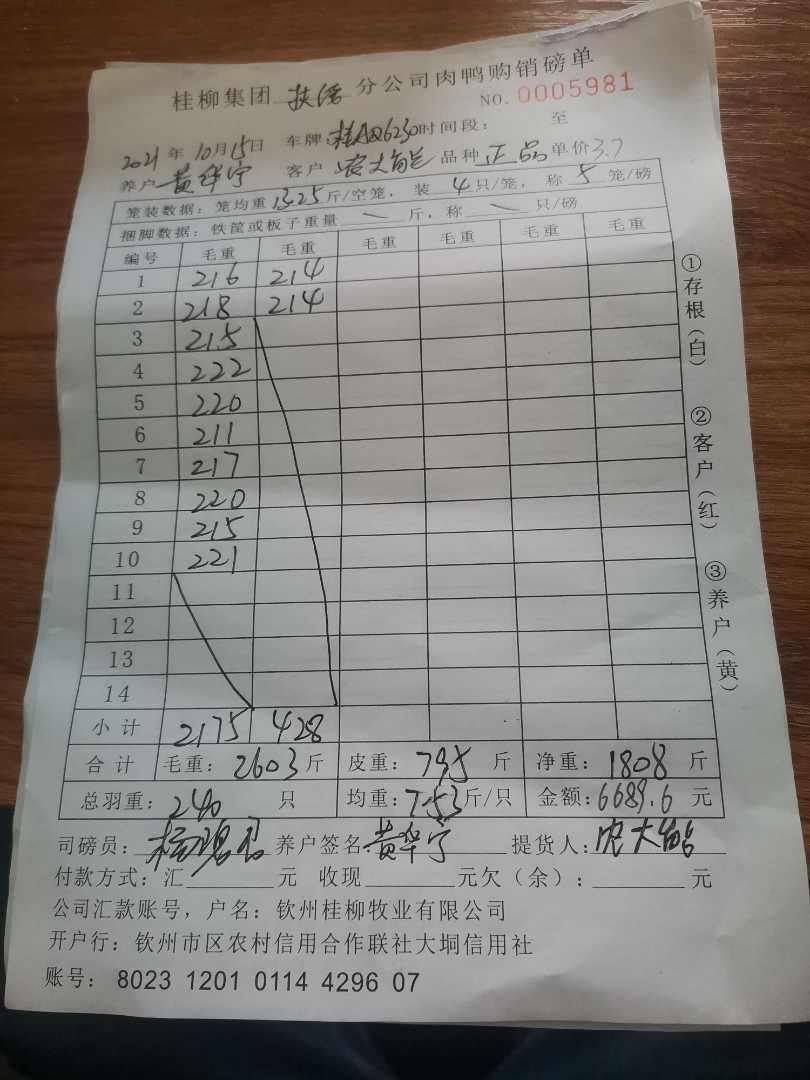 桂柳集团 扶绥 分公司肉鸭购销磅单
NO. 0005981
2021 年 10 月 15 日 车牌: 桂AQ6230 时间段: 至
养户 黄华宁 客户 农大能 品种 正品 单价 3.7
笼装数据: 笼均重 13.25 斤/空笼, 装 4 只/笼, 称 5 笼/磅
捆脚数据: 铁筐或板子重量 \ 斤, 称 \ 只/磅
编号 毛重 毛重 毛重 毛重 毛重 毛重
1 216 214
2 218 214
3 215
4 222
5 220
6 211
7 217
8 220
9 215
10 221
11
12
13
14
小计 2175 428
合计 毛重: 2603 斤 皮重: 795 斤 净重: 1808 斤
总羽重: 240 只 均重: 7.53 斤/只 金额: 6689.6 元
司磅员: 养户签名: 黄华宁 提货人: 农大能
付款方式: 汇 元 收现 元 欠(余): 元
公司汇款账号, 户名: 钦州桂柳牧业有限公司
开户行: 钦州市区农村信用合作联社大垌信用社
账号: 8023 1201 0114 4296 07
①存根(白)
②客户(红)
③养户(黄)